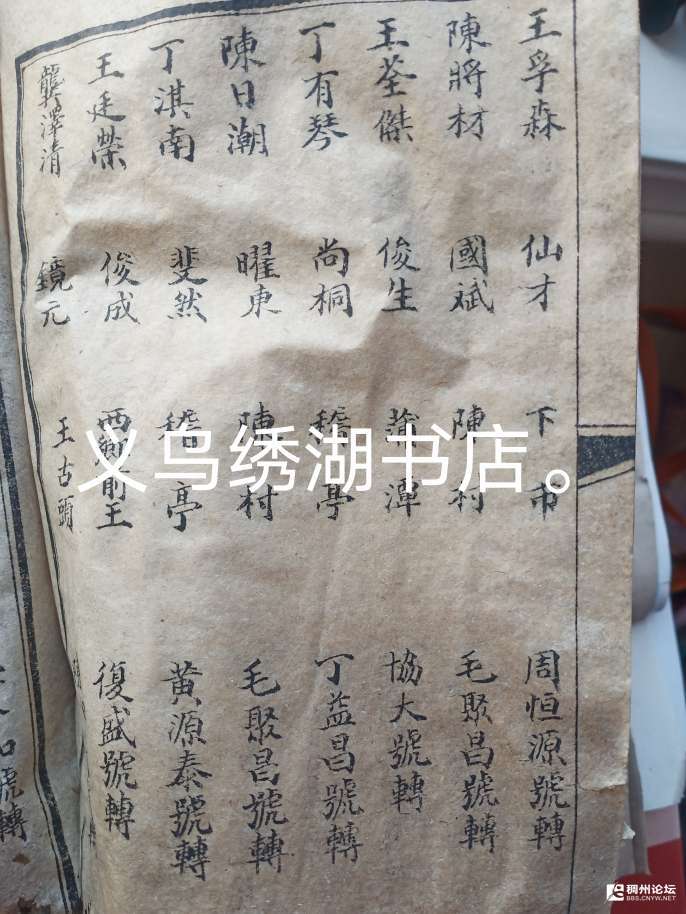 王孚森 仙才 下市 周恒源號轉
陳將材 國斌 陳村 毛聚昌號轉
王荃傑 俊生 蒲潭 協大號轉
丁有琴 尚桐 稽亭 丁益昌號轉
陳日潮 曜東 陳村 毛聚昌號轉
丁淇南 斐然 稽亭 黃源泰號轉
王廷榮 俊成 西鄉前王 復盛號轉
龔澤清 鏡元 王古頭
號轉
义乌绣湖书店。
稠州论坛
BBS.CNYW.NET